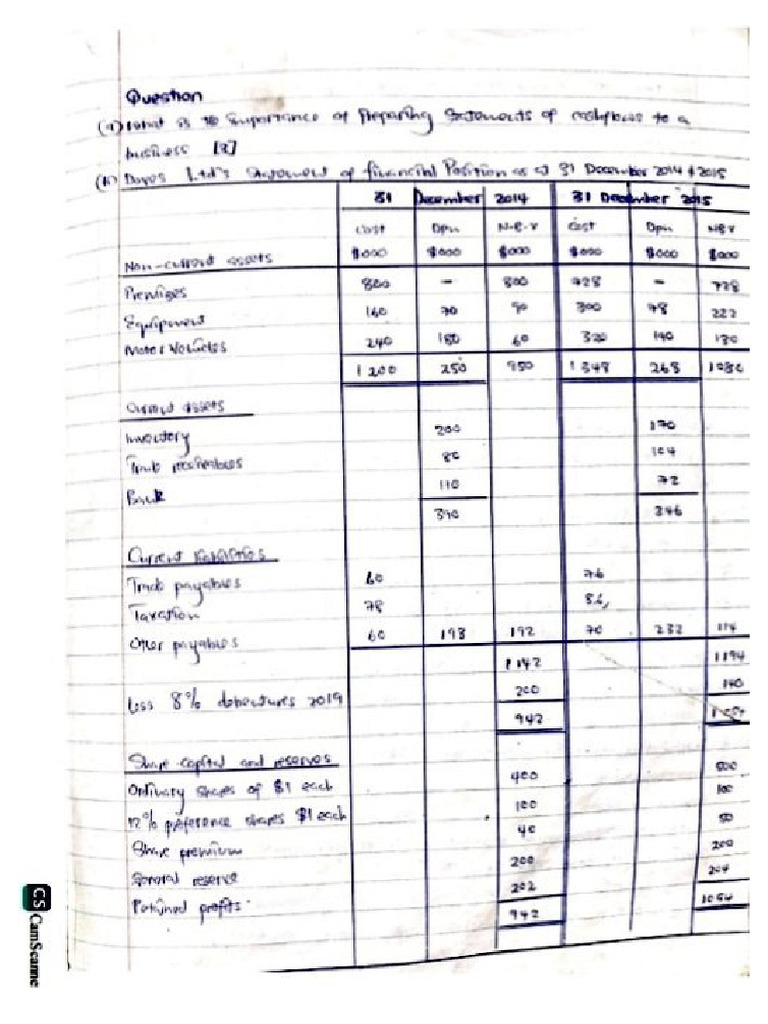 Question
(a) What is the importance of Preparing Statements of cashflows to a
business [8]
(b) Dayos Ltd's Statement of financial Position as at 31 December 2014 & 2015
31 December 2014 31 December 2015
Cost Dpn N-B-V Cost Dpn NBV
Non-current assets $000 $000 $000 $000 $000 $000
Premises 800 - 800 728 - 728
Equipment 160 70 90 300 78 222
Motor Vehicles 240 180 60 320 190 130
1200 250 950 1348 268 1080
Current assets
Inventory 200 170
Trade receivables 80 104
Bank 110 72
390 346
Current liabilities
Trade payables 60 76
Taxation 78 86
Other payables 60 198 192 70 232 114
1142 1194
Less 8% debentures 2019 200 140
942 1054
Share capital and reserves
Ordinary shares of $1 each 400 500
12% preference shares $1 each 100 100
Share premium 40 50
General reserve 200 200
Retained profits 202 204
942 1054
CS CamScanne